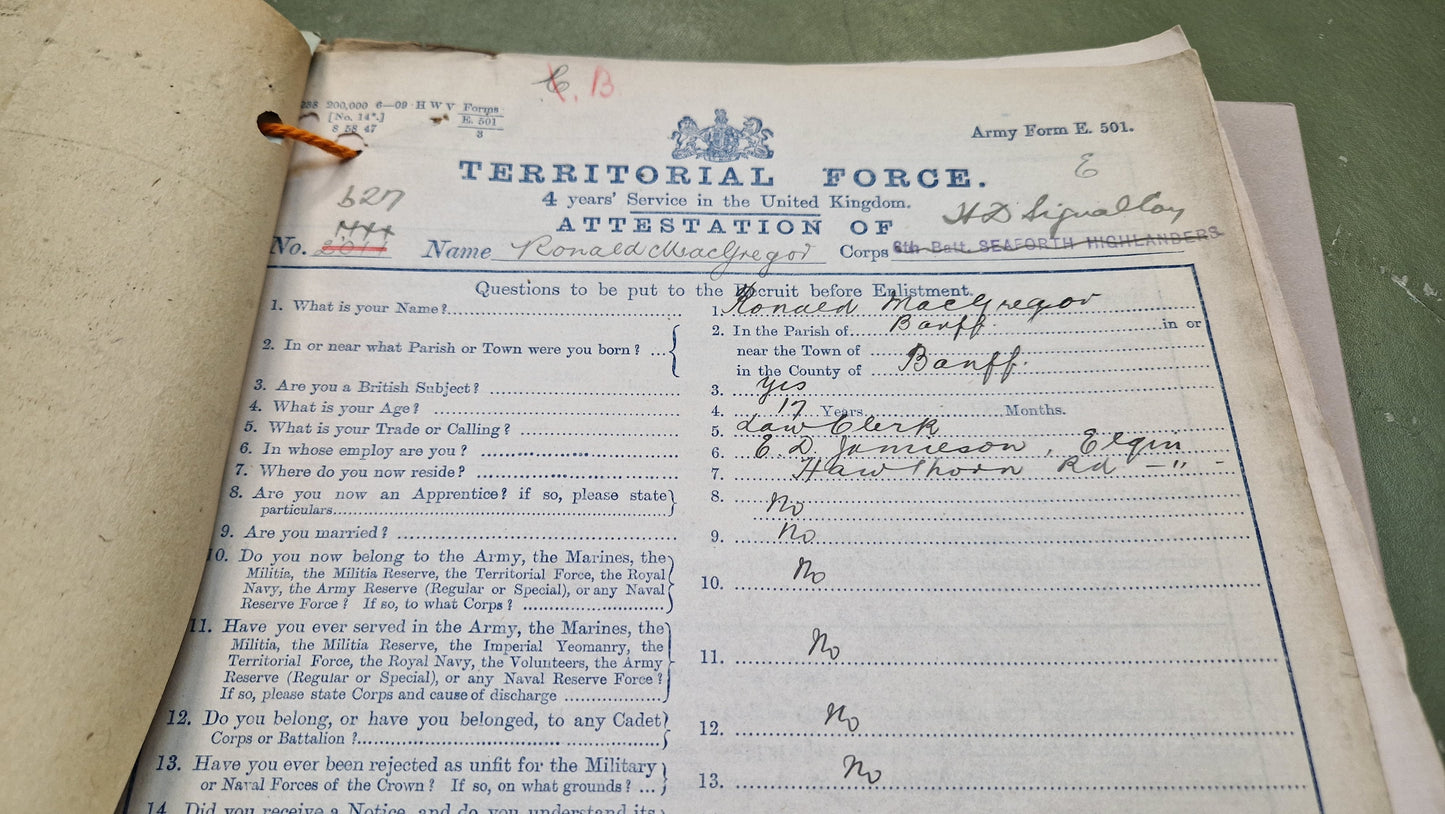 C. B
288 200,000 6—09 H W V Forms
[No. 14*.] E. 501
8 58 47 3
Army Form E. 501.
E
TERRITORIAL FORCE.
627
4 years' Service in the United Kingdom.
H D Signal Coy
ATTESTATION OF
No. Name Ronald MacGregor Corps 6th Batt. SEAFORTH HIGHLANDERS
Questions to be put to the Recruit before Enlistment.
1. What is your Name? 1. Ronald MacGregor
2. In or near what Parish or Town were you born? ... 2. In the Parish of Banff. in or
near the Town of
in the County of Banff.
3. Are you a British Subject? 3. yes
4. What is your Age? 4. 17 Years Months.
5. What is your Trade or Calling? 5. Law Clerk
6. In whose employ are you? 6. E. D. Jamieson, Elgin
7. Where do you now reside? 7. Hawthorn Rd — " —
8. Are you now an Apprentice? if so, please state 8. No
particulars
9. Are you married? 9. No
10. Do you now belong to the Army, the Marines, the 10. No
Militia, the Militia Reserve, the Territorial Force, the Royal
Navy, the Army Reserve (Regular or Special), or any Naval
Reserve Force? If so, to what Corps?
11. Have you ever served in the Army, the Marines, the 11. No
Militia, the Militia Reserve, the Imperial Yeomanry, the
Territorial Force, the Royal Navy, the Volunteers, the Army
Reserve (Regular or Special), or any Naval Reserve Force?
If so, please state Corps and cause of discharge
12. Do you belong, or have you belonged, to any Cadet 12. No
Corps or Battalion?
13. Have you ever been rejected as unfit for the Military 13. No
or Naval Forces of the Crown? If so, on what grounds? ...
14. Did you receive a Notice, and do you understand its